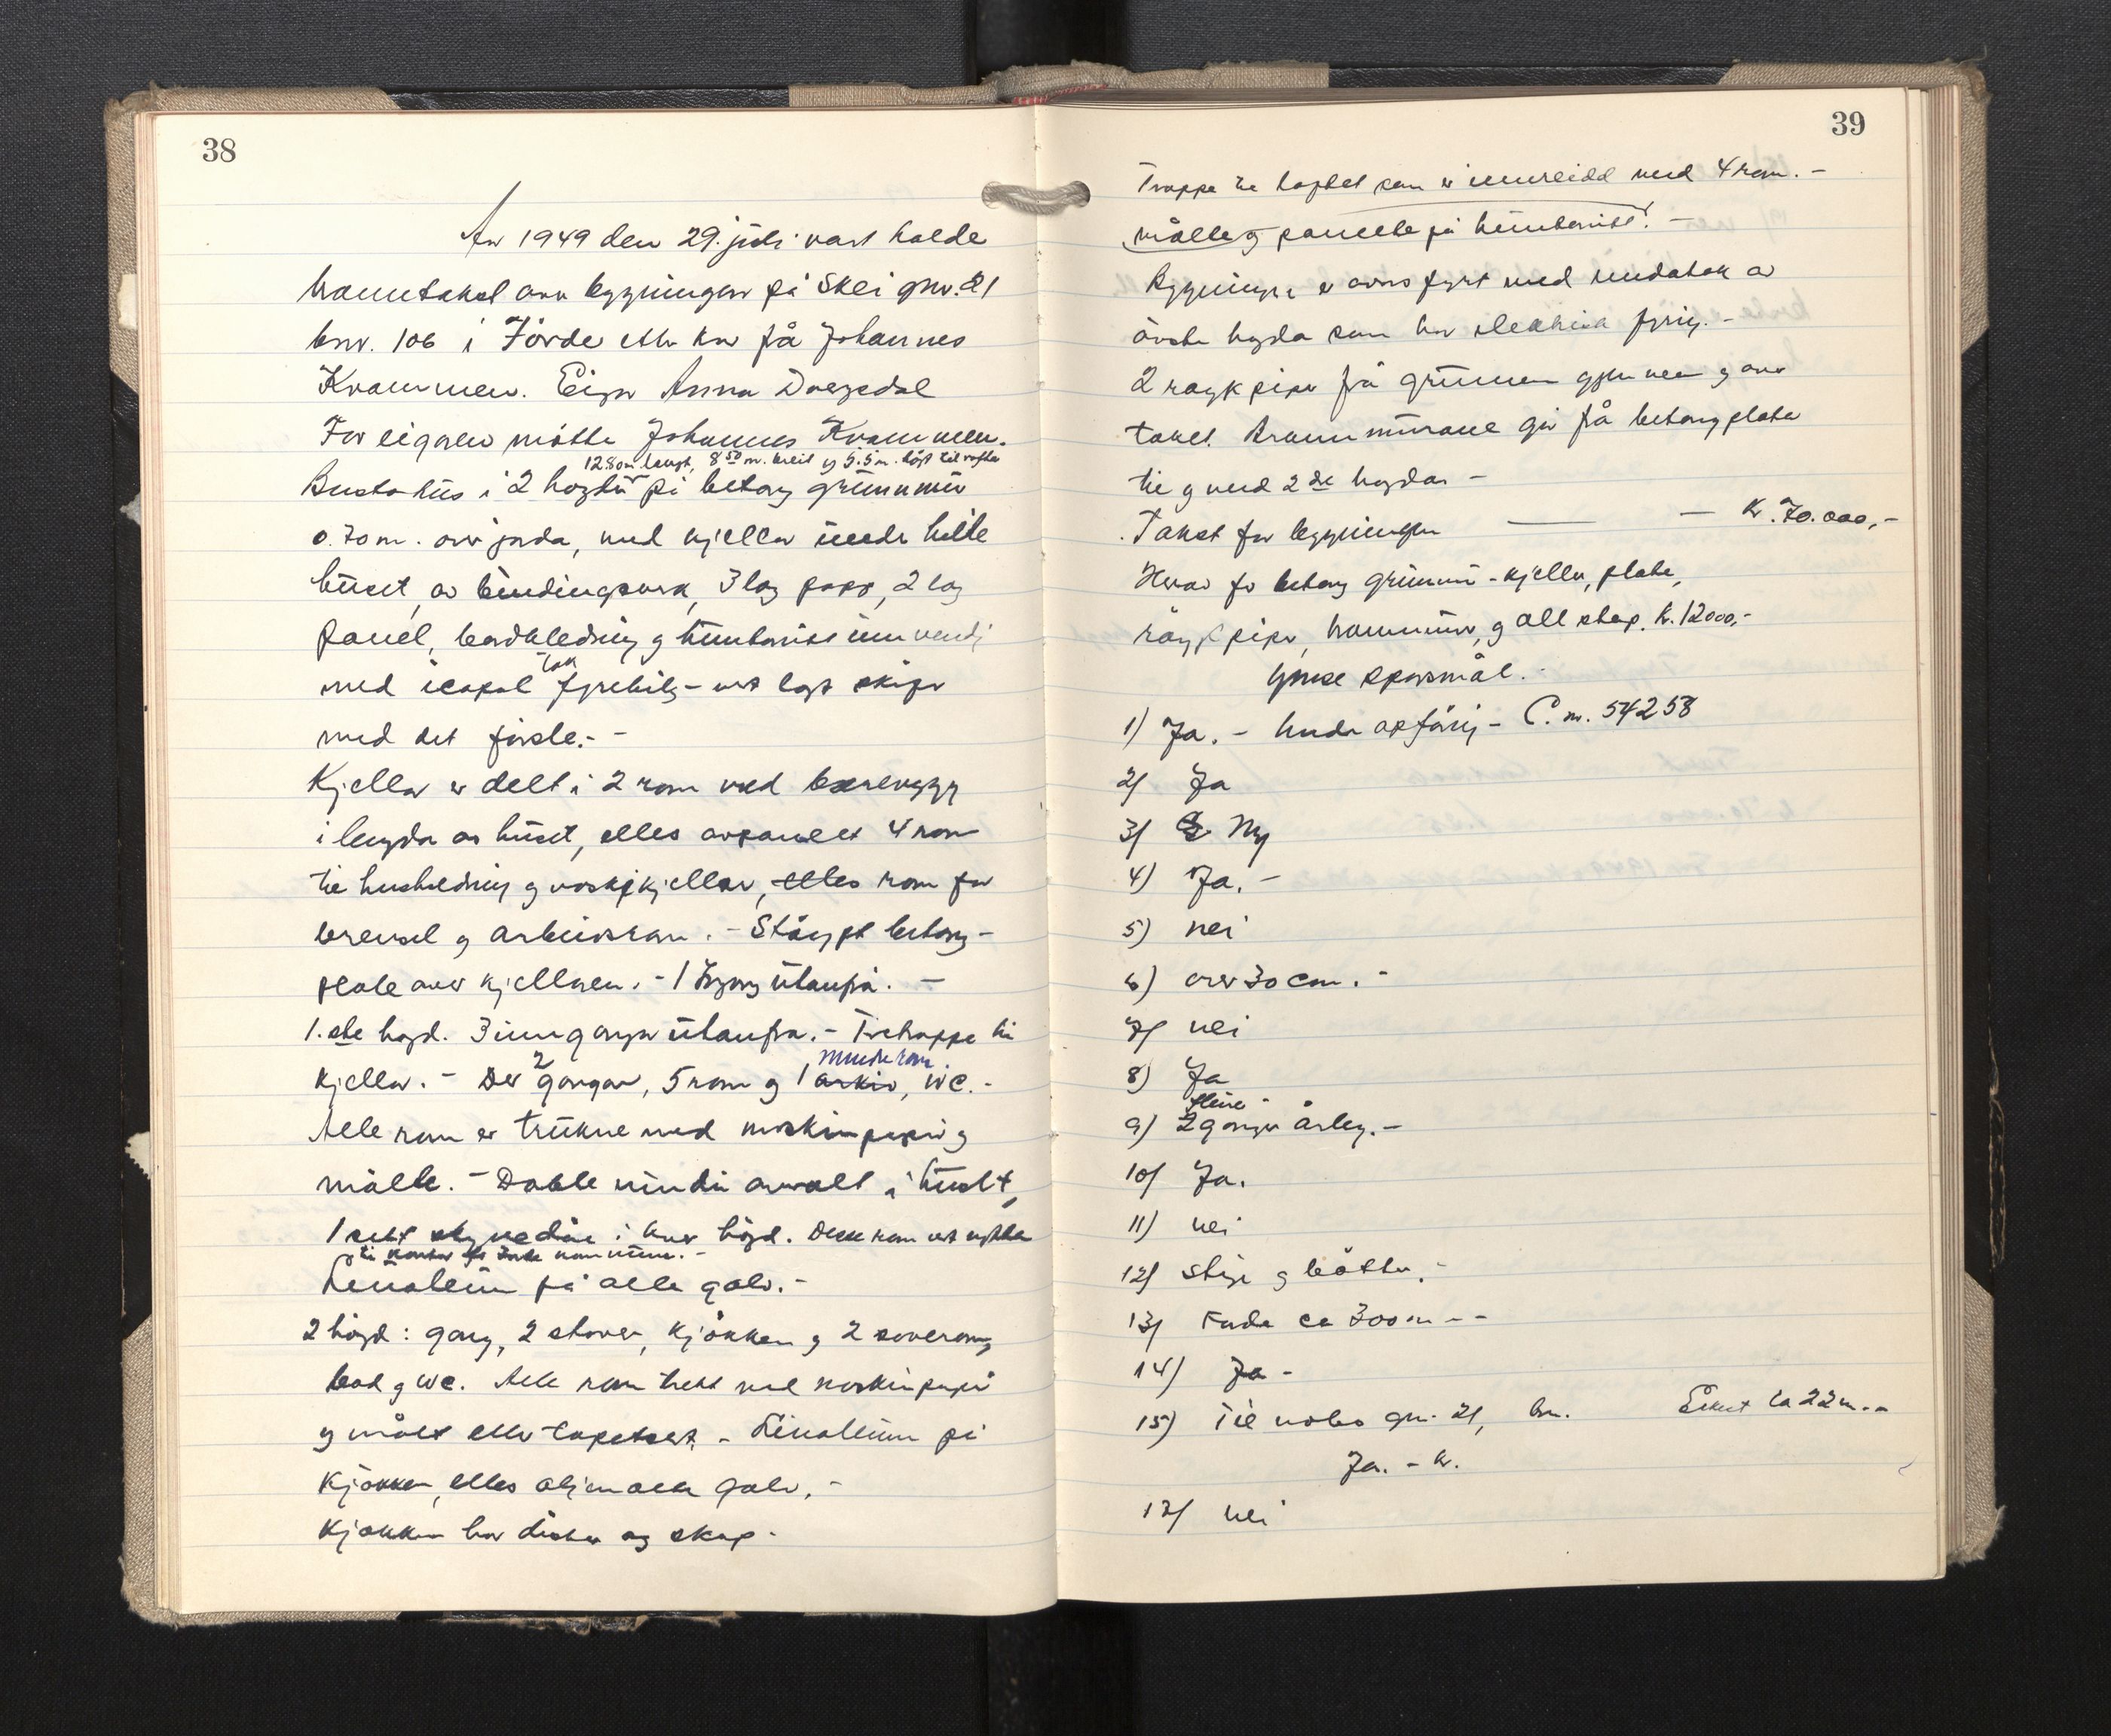 38
År 1949 den 29. juli vart halde
branntakst over bygningen på Skei gnr. 21
bnr. 106 i Förde etter krav frå Johannes
Krammen. Eigar Anna
For eigaren mötte Johannes Krammen.
12.80 m. langt, 8.50 m. breit og 5.5 m. högt til rafta
Bustahús i 2 högder på betong grunnmur
0.70 m. over jorda, med kjellar under heile
húset, av bindingsverk, 3 lag papp, 2 lag
panel, bordkledning og innvendig
med icopal tak fyrebils - vert lagt skifer
med det förste. -
Kjellar er delt i 2 rom ved berevegg
i lengda av húset, elles avpanelt 4 rom
til husholdning og vaskekjellar, elles rom for
brensel og arbeidsrom. - Stöypt betong-
plate over kjellaren. - 1 utanfrå. -
1. ste högd. 3 inngangar utanfrå. - Tretrappe til
kjellar. - Der 2 gangar, 5 rom og 1 arkiv, WC. -
Alle rom er trukne med maskinpapir og
målte. - Doble vindu overalt i húset,
1 sett skyvedör i kver högd. Desse rom vert nytta
til kontor for Förde kommune. -
Linoleum på alle golv. -
2 högd: gang, 2 stover, kjökken og 2 soverom,
bad og WC. Alle rom trekt med maskinpapir
og målt eller tapetsert. - Linoleum på
kjökken, elles oljemålte golv. -
Kjökken har disker og skap.
39
Trappe til loftet som er innreidd med 4 rom. -
målte og panelte på
Bygningen er ovns fyrt med undatak av
övste högda som har elektrisk fyring. -
2 röykpiper frå grunnen gjennom og over
taket. Brannmurane går frå betongplate
til og med 2 de högda -
Takst for bygningen — — Kr. 70.000,-
Herav for betong grunnmur - kjellar, plate,
röykpiper, brannmur, og all støp. kr. 12000,-
Ymse spørsmål. -
1) Ja. - Under oppföring - C. nr. 54258
2) Ja
3) Ny
4) Ja. -
5) nei
6) over 30 cm. -
7) nei
8) Ja
9) 2 gonger årleg. -
10) Ja.
11) nei
12) stige og bötter. -
13) Enda ca 300 m - -
14) Ja -
15) Til nabo gnr. 21, bnr. Eiket ca 22 m. -
Ja. - kr.
17) nei